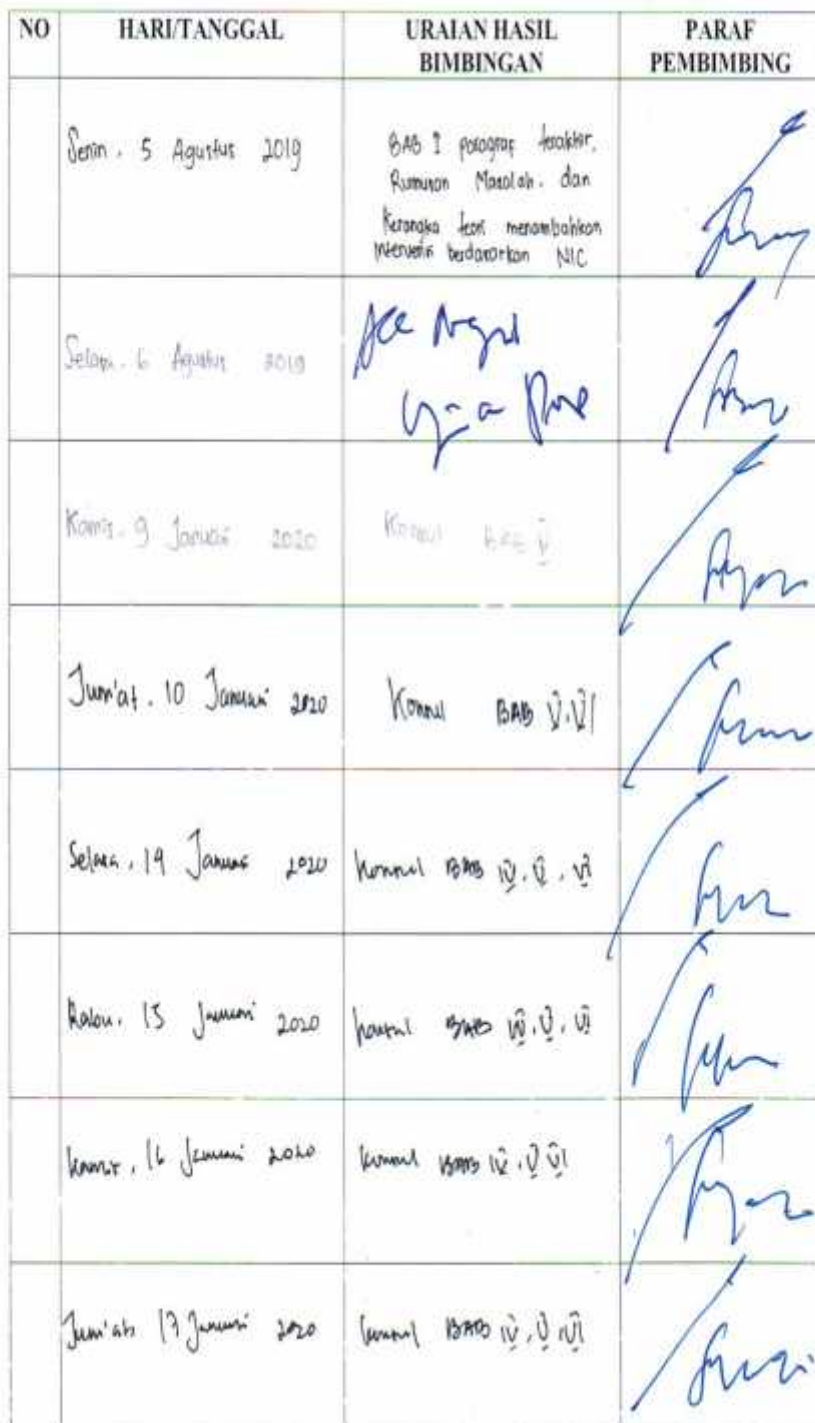 NO HARI/TANGGAL URAIAN HASIL BIMBINGAN PARAF PEMBIMBING
Senin. 5 Agustus 2019
BAB I paragraf terakhir,
Rumusan Masalah. dan
Kerangka teori menambahkan
intervensi berdasarkan NIC
Selasa. 6 Agustus 2019
Acc
Kamis. 9 Januari 2020
Konsul BAB V
Jum'at. 10 Januari 2020
Konsul BAB V, VI
Selasa, 14 Januari 2020
Konsul BAB IV, V, VI
Rabu. 15 Januari 2020
Konsul BAB IV, V, VI
Kamis, 16 Januari 2020
Konsul BAB IV, V VI
Jum'at, 17 Januari 2020
Konsul BAB IV, V, VI